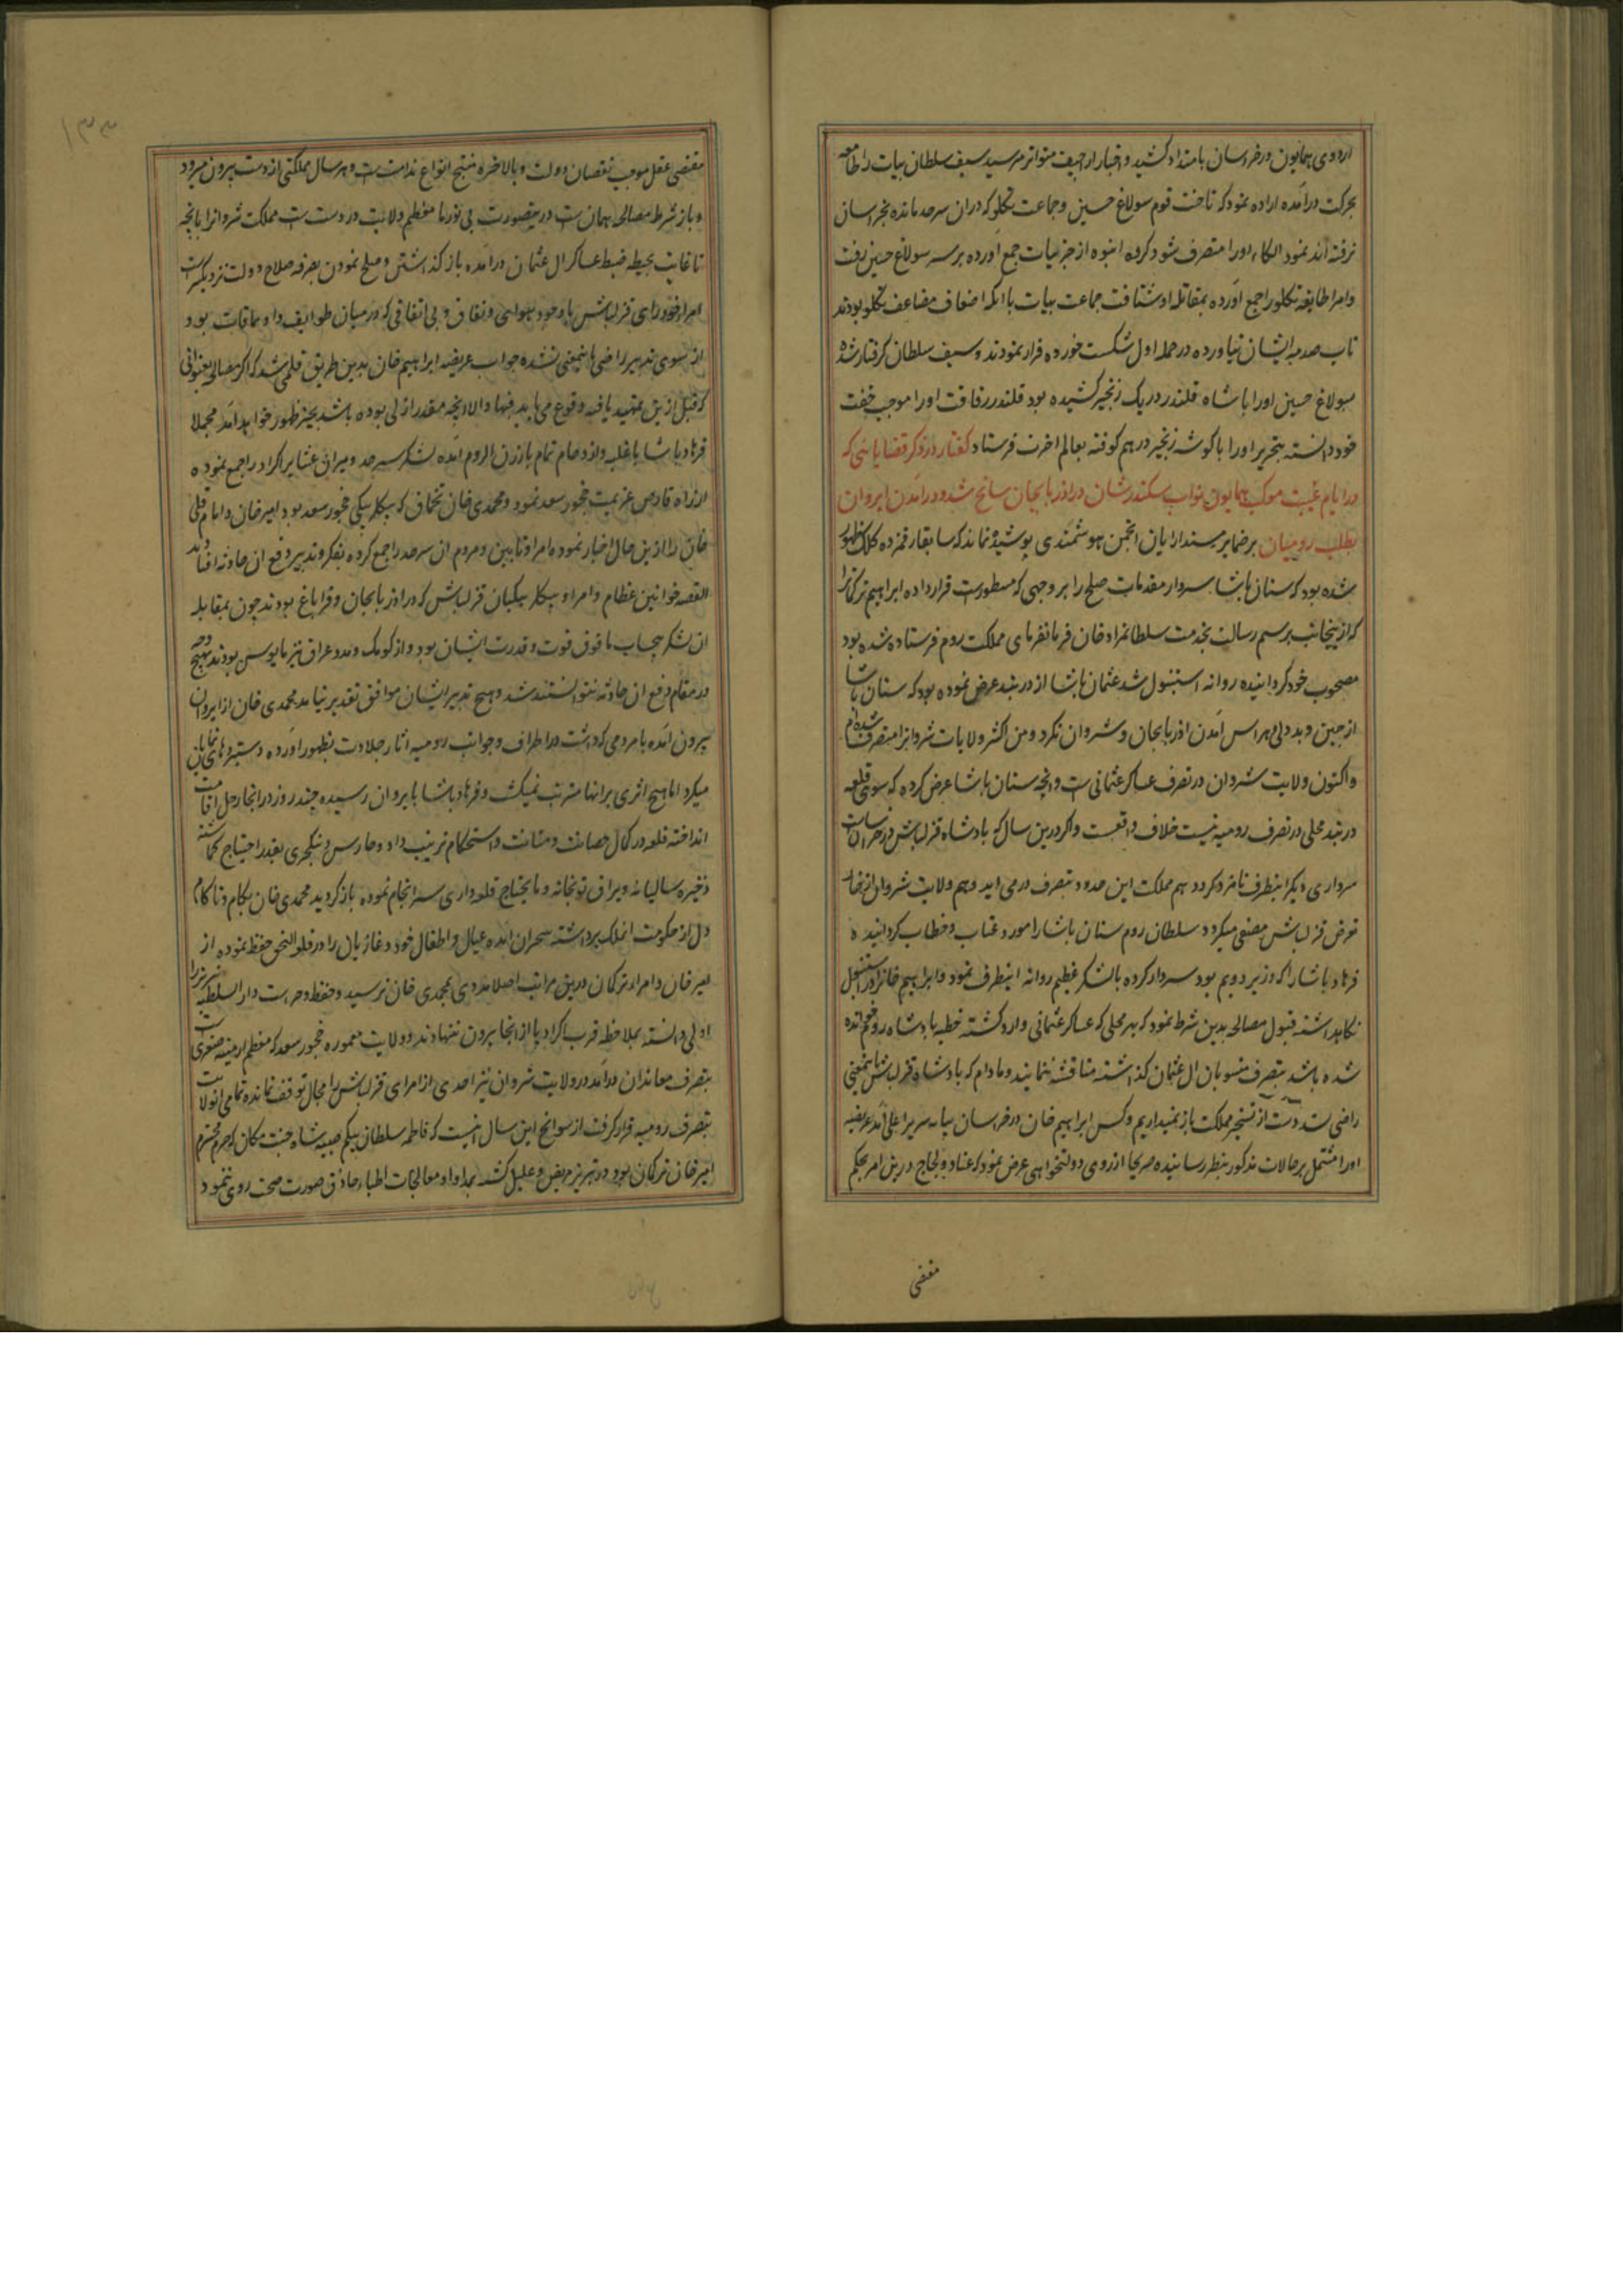 اردوی همایون در خراسان بامتداد کشید و اخبار اراجیف متواتر میرسید سیف سلطان بیات را طامعه
بحرکت درآمده اراده نمود که تاخت قوم سولاغ حسین و جماعت تکلو که در ان سرحد مانده بخراسان
نرفته اند نمود الکاء اورا متصرف شود گروه انبوه از جزئیات جمع آورده بر سر سولاغ حسین رفت
وامرا طایفه تکلو را جمع آورده بمقاتله او شتافت جماعت بیات با انکه اضعاف مضاعف تکلو بودند
تاب صدمه ایشان نیاورده در حمله اول شکست خورده فرار نمودند و سیف سلطان گرفتار شده
سولاغ حسین اورا با شاه قلندر در یک زنجیر کشیده بود قلندر رفاقت اورا موجب خفت
خود دانسته بتحریر اورا با گوشه زنجیر در هم کوفته بعالم اخرت فرستاد گفتار در ذکر قضایائی که
در ایام غیبت موکب همایون نواب سکندرشان در اذربایجان سانح شد و درآمدن ایروان
بطلب رومیان بر ضمایر مسندارایان انجمن هوشمندی پوشیده نماند که سابقا رقمزده کلک ظهور
شده بود که سنان پاشا سردار مقدمات صلح را بر وجهی که مسطورست قرار داده ابراهیم ترکانرا
که ازینجانب برسم رسالت بخدمت سلطانمراد خان فرمانفرمای مملکت روم فرستاده شده بود
مصحوب خود گردانیده روانه استنبول شد عثمان پاشا از دربند عرض نموده بود که سنان پاشا
از جبن و بددلی هراس آمدن اذربایجان و شروان نکرد و من اکثر ولایات شروانرا متصرف شده ام
واکنون ولایت شروان در تصرف عساکر عثمانی است و انچه سنان پاشا عرض کرده که سوی قلعه
دربند محلی در تصرف رومیه نیست خلاف واقعست و اگر درین سال که پادشاه قزلباش در خراسان است
سرداری دیگر اینطرف نامزد گردد هم مملکت این حدود بتصرف درمی اید و هم ولایت شروان از خار
تعرض قزلباش مصفی میگردد سلطان روم سنان پاشا را مورد عتاب و خطاب گردانیده
فرهاد پاشا را که وزیر دویم بود سردار کرده با لشکر عظیم روانه اینطرف نمود و ابراهیم خانرا در استنبول
نگاهداشته قبول مصالحه بدین شرط نمود که بهر محلی که عساکر عثمانی وارد گشته خطبه پادشاه روم خوانده
شده باشد بتصرف منسوبان ال عثمان گذاشته مناقشه ننمایند و مادام که پادشاه قزلباش باینمعنی
راضی نشد دست از تسخیر مملکت باز نمیداریم و کس ابراهیم خان در خراسان بپایه سریر اعلی آمد عریضه
اورا مشتمل بر حالات مذکور بنظر رسانیده صریحا از روی دولتخواهی عرض نمود که عناد و لجاج درین امر بحکم
مقتضی
۱۳۳
مقتضی عقل موجب نقصان دولت و بالاخره منتج انواع ندامت است و هر سال مملکتی از دست بیرون میرود
و باز شرط مصالحه همان است درینصورت بی نور ما معظم ولایت در دست است مملکت شروانرا بانچه
تا غایت بحیطه ضبط عساکر ال عثمان درآمده باز گذاشتن و صلح نمودن بصرفه صلاح دولت نزدیکترست
امراء خودرای قزلباش با وجود بیوائی و نفاق و بی اتفاقی که در میان طوایف داویماقات بود
از سوی تدبیر راضی باینمعنی نشده جواب عریضه ابراهیم خان بدین طریق قلمی شد که اگر مصالحه بعنوانی
که قبل ازین تمهید یافته وقوع می یابد فبها والا انچه مقدر ازلی بوده باشد بحیز ظهور خواهد آمد مجملا
فرهاد پاشا با غلبه و ازدحام تمام بارزن الروم آمده لشکر سرحد و میران عشایر اکراد را جمع نموده
از راه قارص عزیمت چخور سعد نمود و محمدی خان تخماق که بیگلربیگی چخور سعد بود امیر خان و امام قلی
خان را ازین حال اخبار نموده امراء تابین و مردم ان سرحد را جمع کرده بفکر و تدبیر دفع ان حادثه افتاد
القصه خوانین عظام و امرا و بیگلربیگیان قزلباش که در اذربایجان و قراباغ بودند چون بمقابله
ان لشکر بیحساب مافوق قوت و قدرت ایشان بود و از کومک و مدد عراق نیز مایوس بودند بهیچ وجه
در مقام دفع ان حادثه نتوانستند شد و هیچ تدبیر ایشان موافق تقدیر نیامد محمدی خان از ایروان
بیرون آمده با مردمی که داشت در اطراف و جوانب رومیه اثار جلادت بظهور آورده دستبردهای نمایان
میکرد اما هیچ اثری بر انها مترتب نمیگشت و فرهاد پاشا بایروان رسیده چند روز در انجا رحل اقامت
انداخته قلعه در کمال حصانت و متانت و استحکام ترتیب داد و حارس و ینکچری بقدر احتیاج گماشته
ذخیره سالیانه و یراق توپخانه و مایحتاج قلعه داری سرانجام نموده باز گردید محمدی خان بکام و ناکام
دل از حکومت انملک برداشته بحران آمده عیال و اطفال خود و غازیان را در قلعه النجق حفظ نموده از
امیر خان و امراء ترکان درین مراتب اصلا مددی بمحمدی خان نرسید و حفظ و حراست دارالسلطنه تبریز را
اولی دانسته بملاحظه قرب اکراد پا از انجا بیرون ننهادند و ولایت معموره چخور سعد که معظم ارمنیه صغری است
بتصرف معاندان درآمد در ولایت شروان نیز احدی از امرای قزلباش را مجال توقف نمانده تمامی انولایت
بتصرف رومیه قرار گرفت از سوانح این سال انیست که فاطمه سلطان بیگم صبیه شاه جنت مکان که حرم محترم
امیر خان ترکان بود در تبریز مریض و علیل گشته بمداوا و معالجات اطباء حاذق صورت صحت روی ننمود